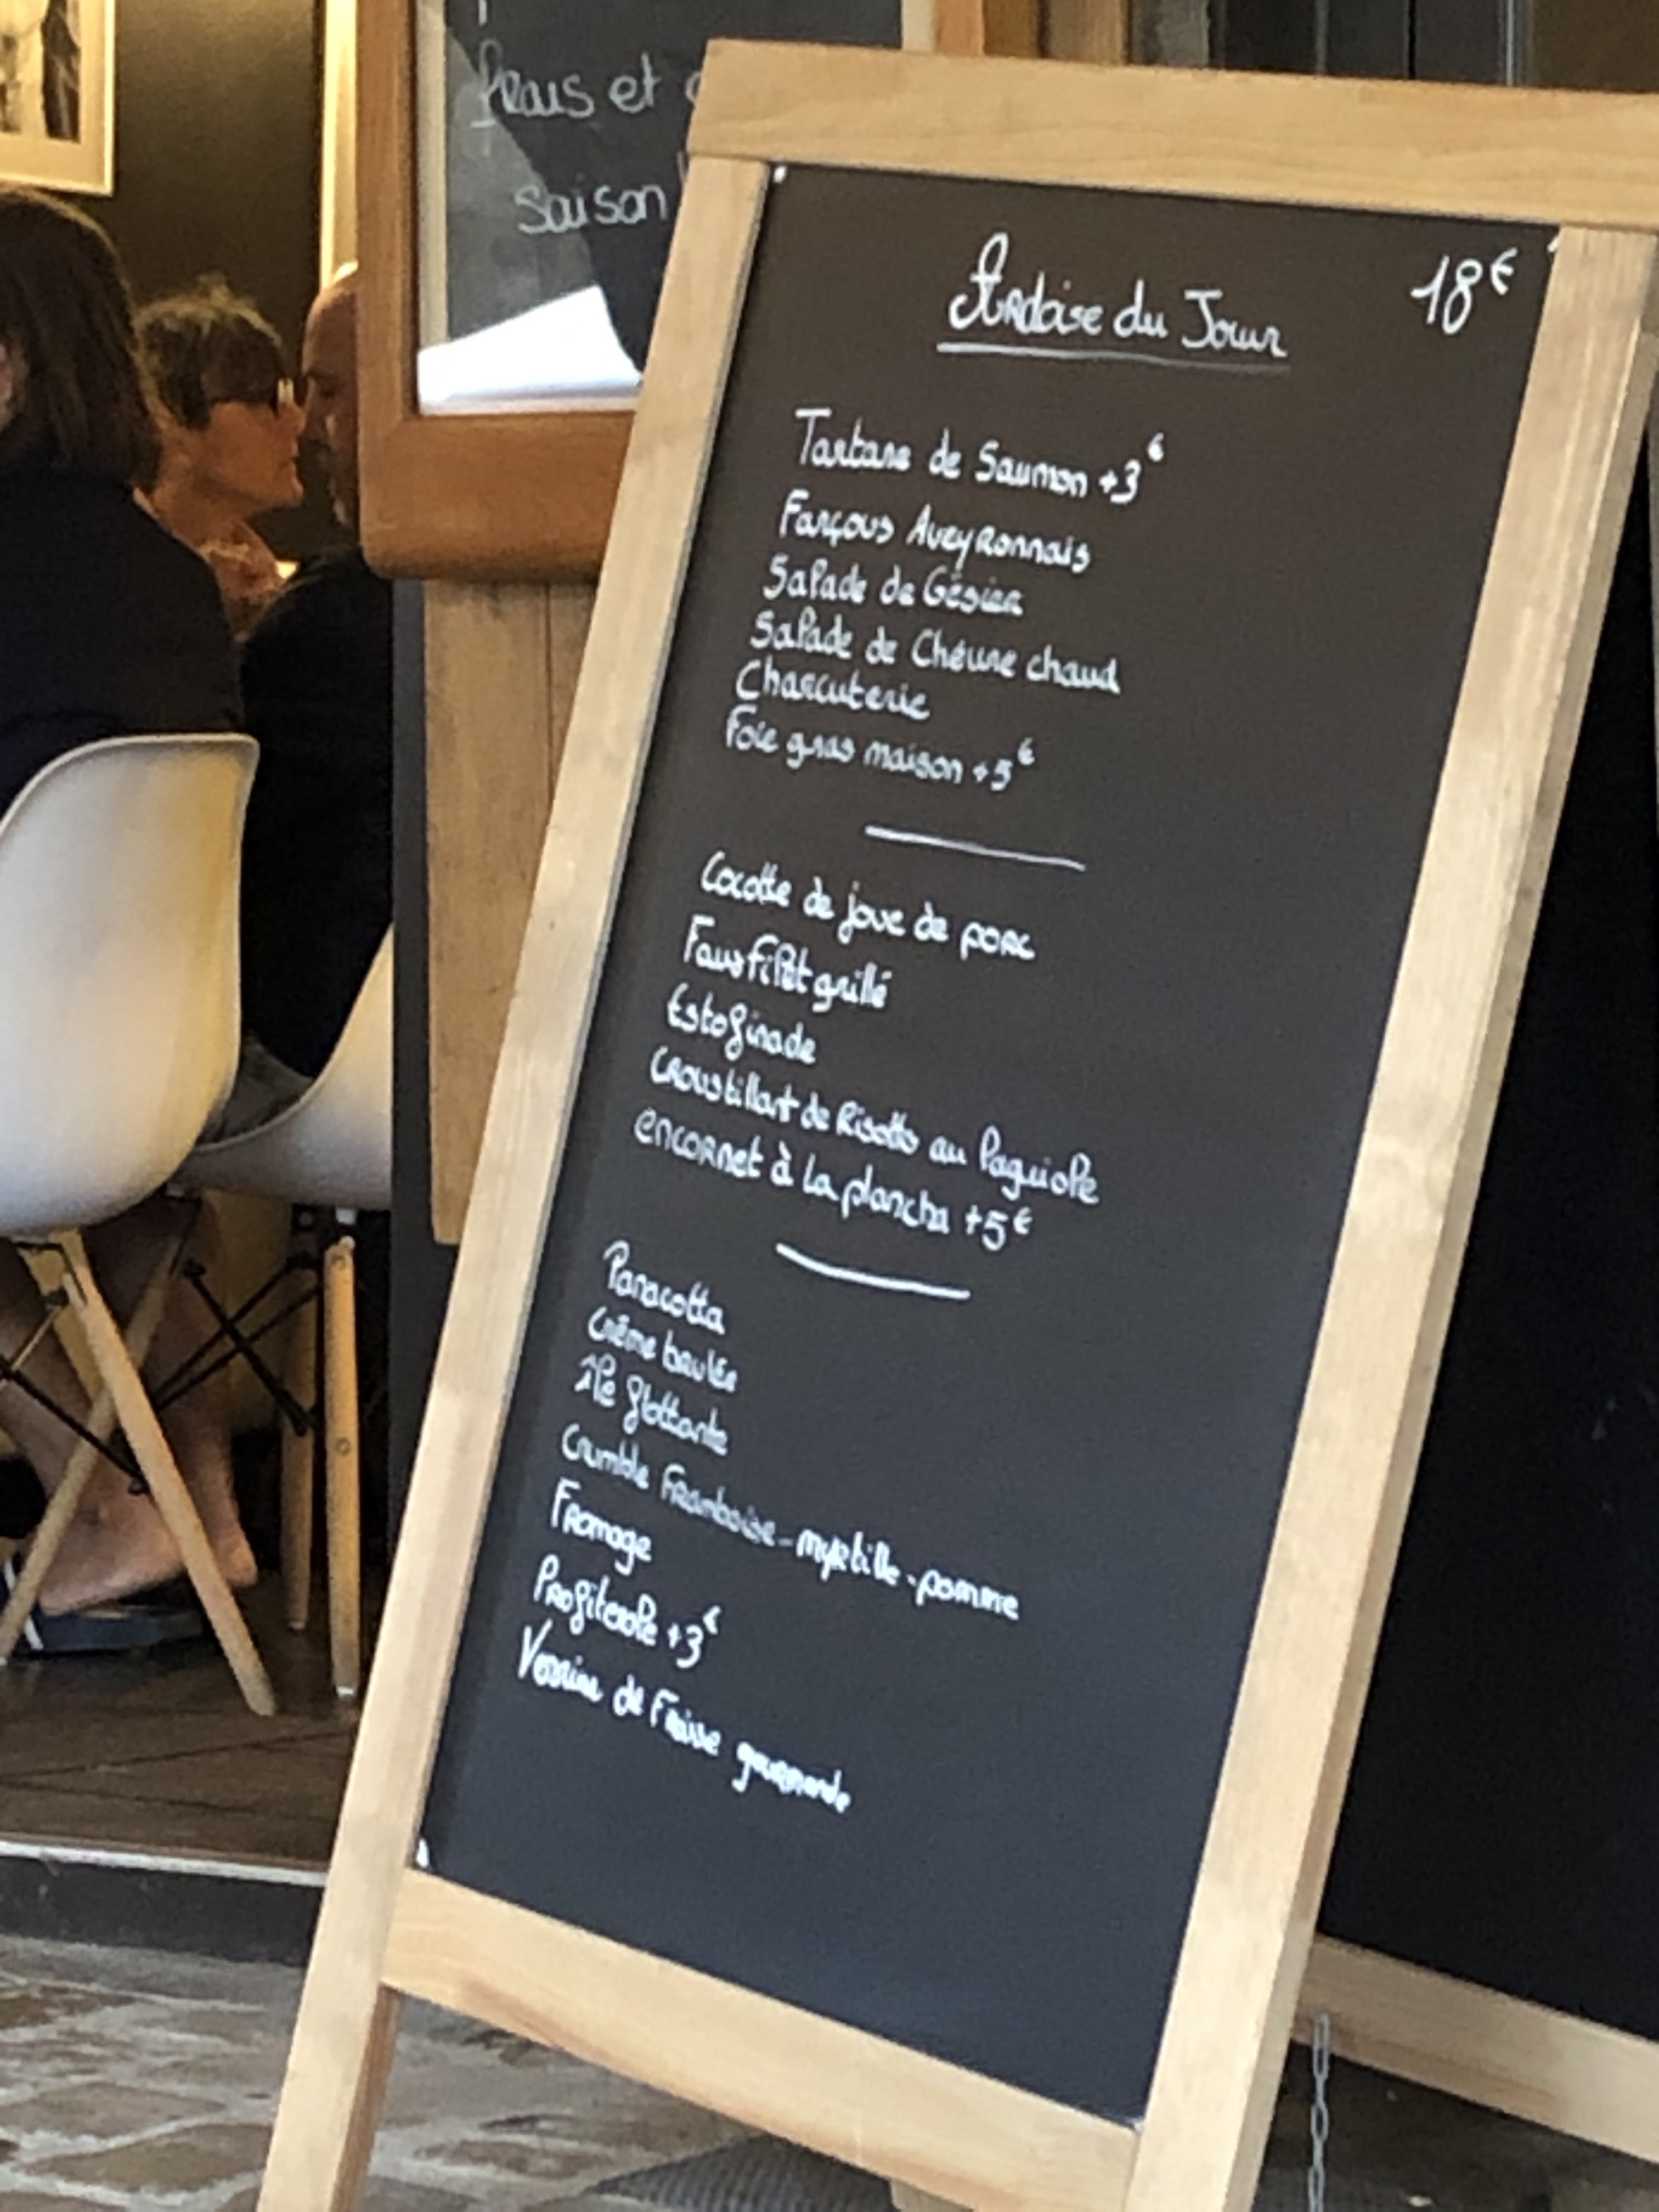 et
saison
Ardoise du Jour
18€
Tartare de Saumon +3€
Farçous Aveyronnais
Salade de Gésier
Salade de Chèvre chaud
Charcuterie
Foie gras maison +5€
Cocotte de joue de porc
Faux filet grillé
Estofinade
Croustillant de Risotto au laguiole
encornet à la plancha +5€
Panacotta
Crème brulée
île flottante
Crumble Framboise-myrtille-pomme
Fromage
Profiterole +3€
Verrine de Fraise gourmande